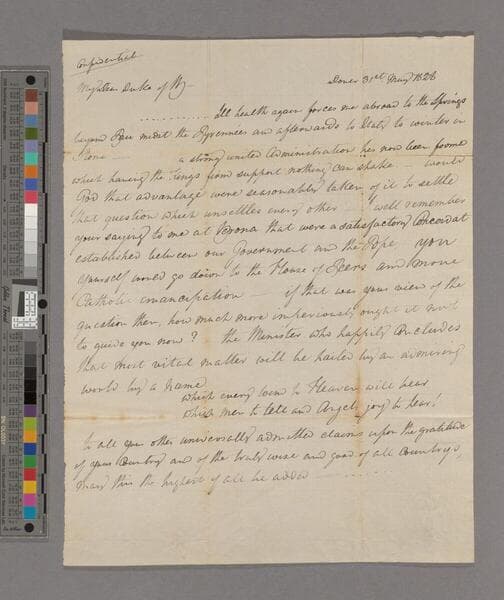 Confidential
My dear Duke of W-
Dover 31st May 1828
Ill health again forces me abroad to the Springs
beyond Pau midst the Pyrennees and afterwards to Italy to winter in
Rome a strong united Administration has now been formed
which having the Kings firm support nothing can shake would
God that advantage were seasonably taken of it to settle
that question which unsettles every other I well remember
your saying to me at Verona that were a satisfactory Concordat
established between our Government and the Pope you
yourself would go down to the House of Peers and move
Catholic emancipation if that was your view of the
question then, how much more imperiously ought it not
to guide you now? the Minister who happily concludes
that most vital matter will be hailed by an admiring
world by a name
which every wind to Heaven will bear
which men to tell and Angels joy to hear!
to all your other universally admitted claims upon the gratitude
of your Country and of the truly wise and good of all Countrys
may this the highest of all be added